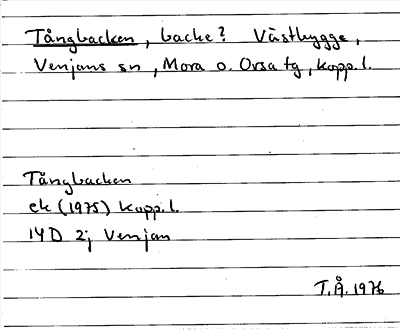 Tångbacken, backe? Västbygge,
Venjans sn, Mora o. Orsa tg, Kopp. l.
Tångbacken
ek (1975) Kopp. l.
14D 2j Venjan
T.Å. 1976